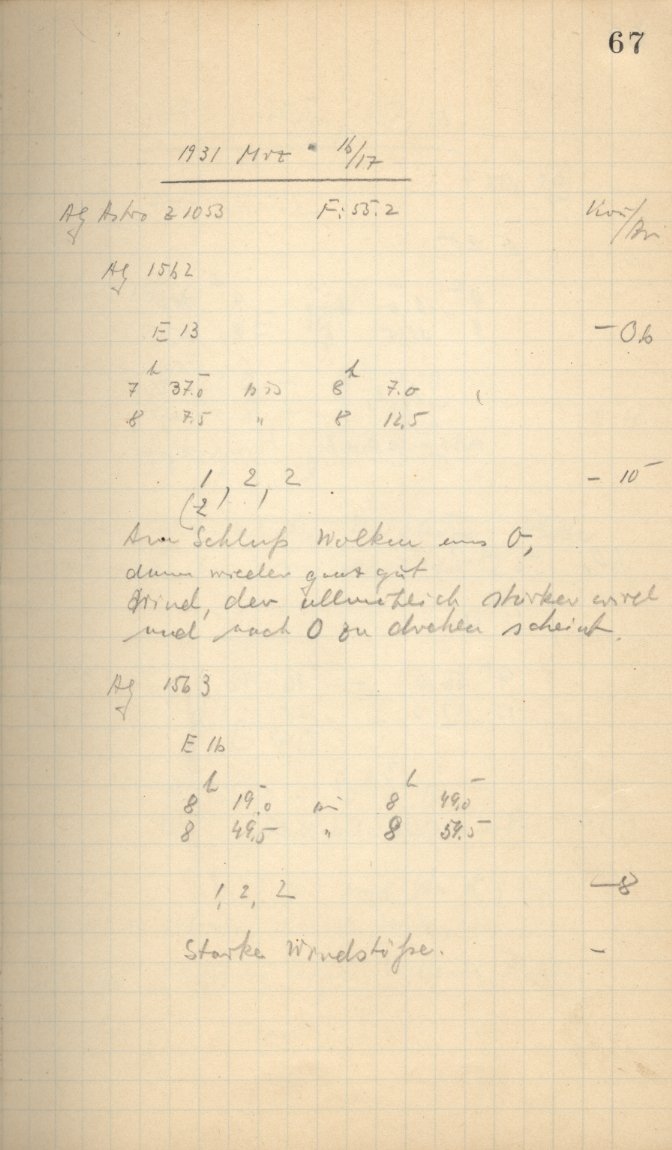 67
1931 Mrz 16/17
Ag Astro Z 1053 F: 55.2
Ag 1562
E 13 - 0.6
7h 37.5 bis 8h 7.0
8 7.5 " 8 12.5
1, 2, 2 - 15
(2)
Am Schluß Wolken aus O,
dann wieder ganz gut
Wind, der allmählich stärker wird
und nach O zu drehen scheint.
Ag 1563
E 16
8h 19.0 bis 8h 49.0
8 49.5 " 8 54.5
1, 2, 2 - 8
Starke Windstöße. -